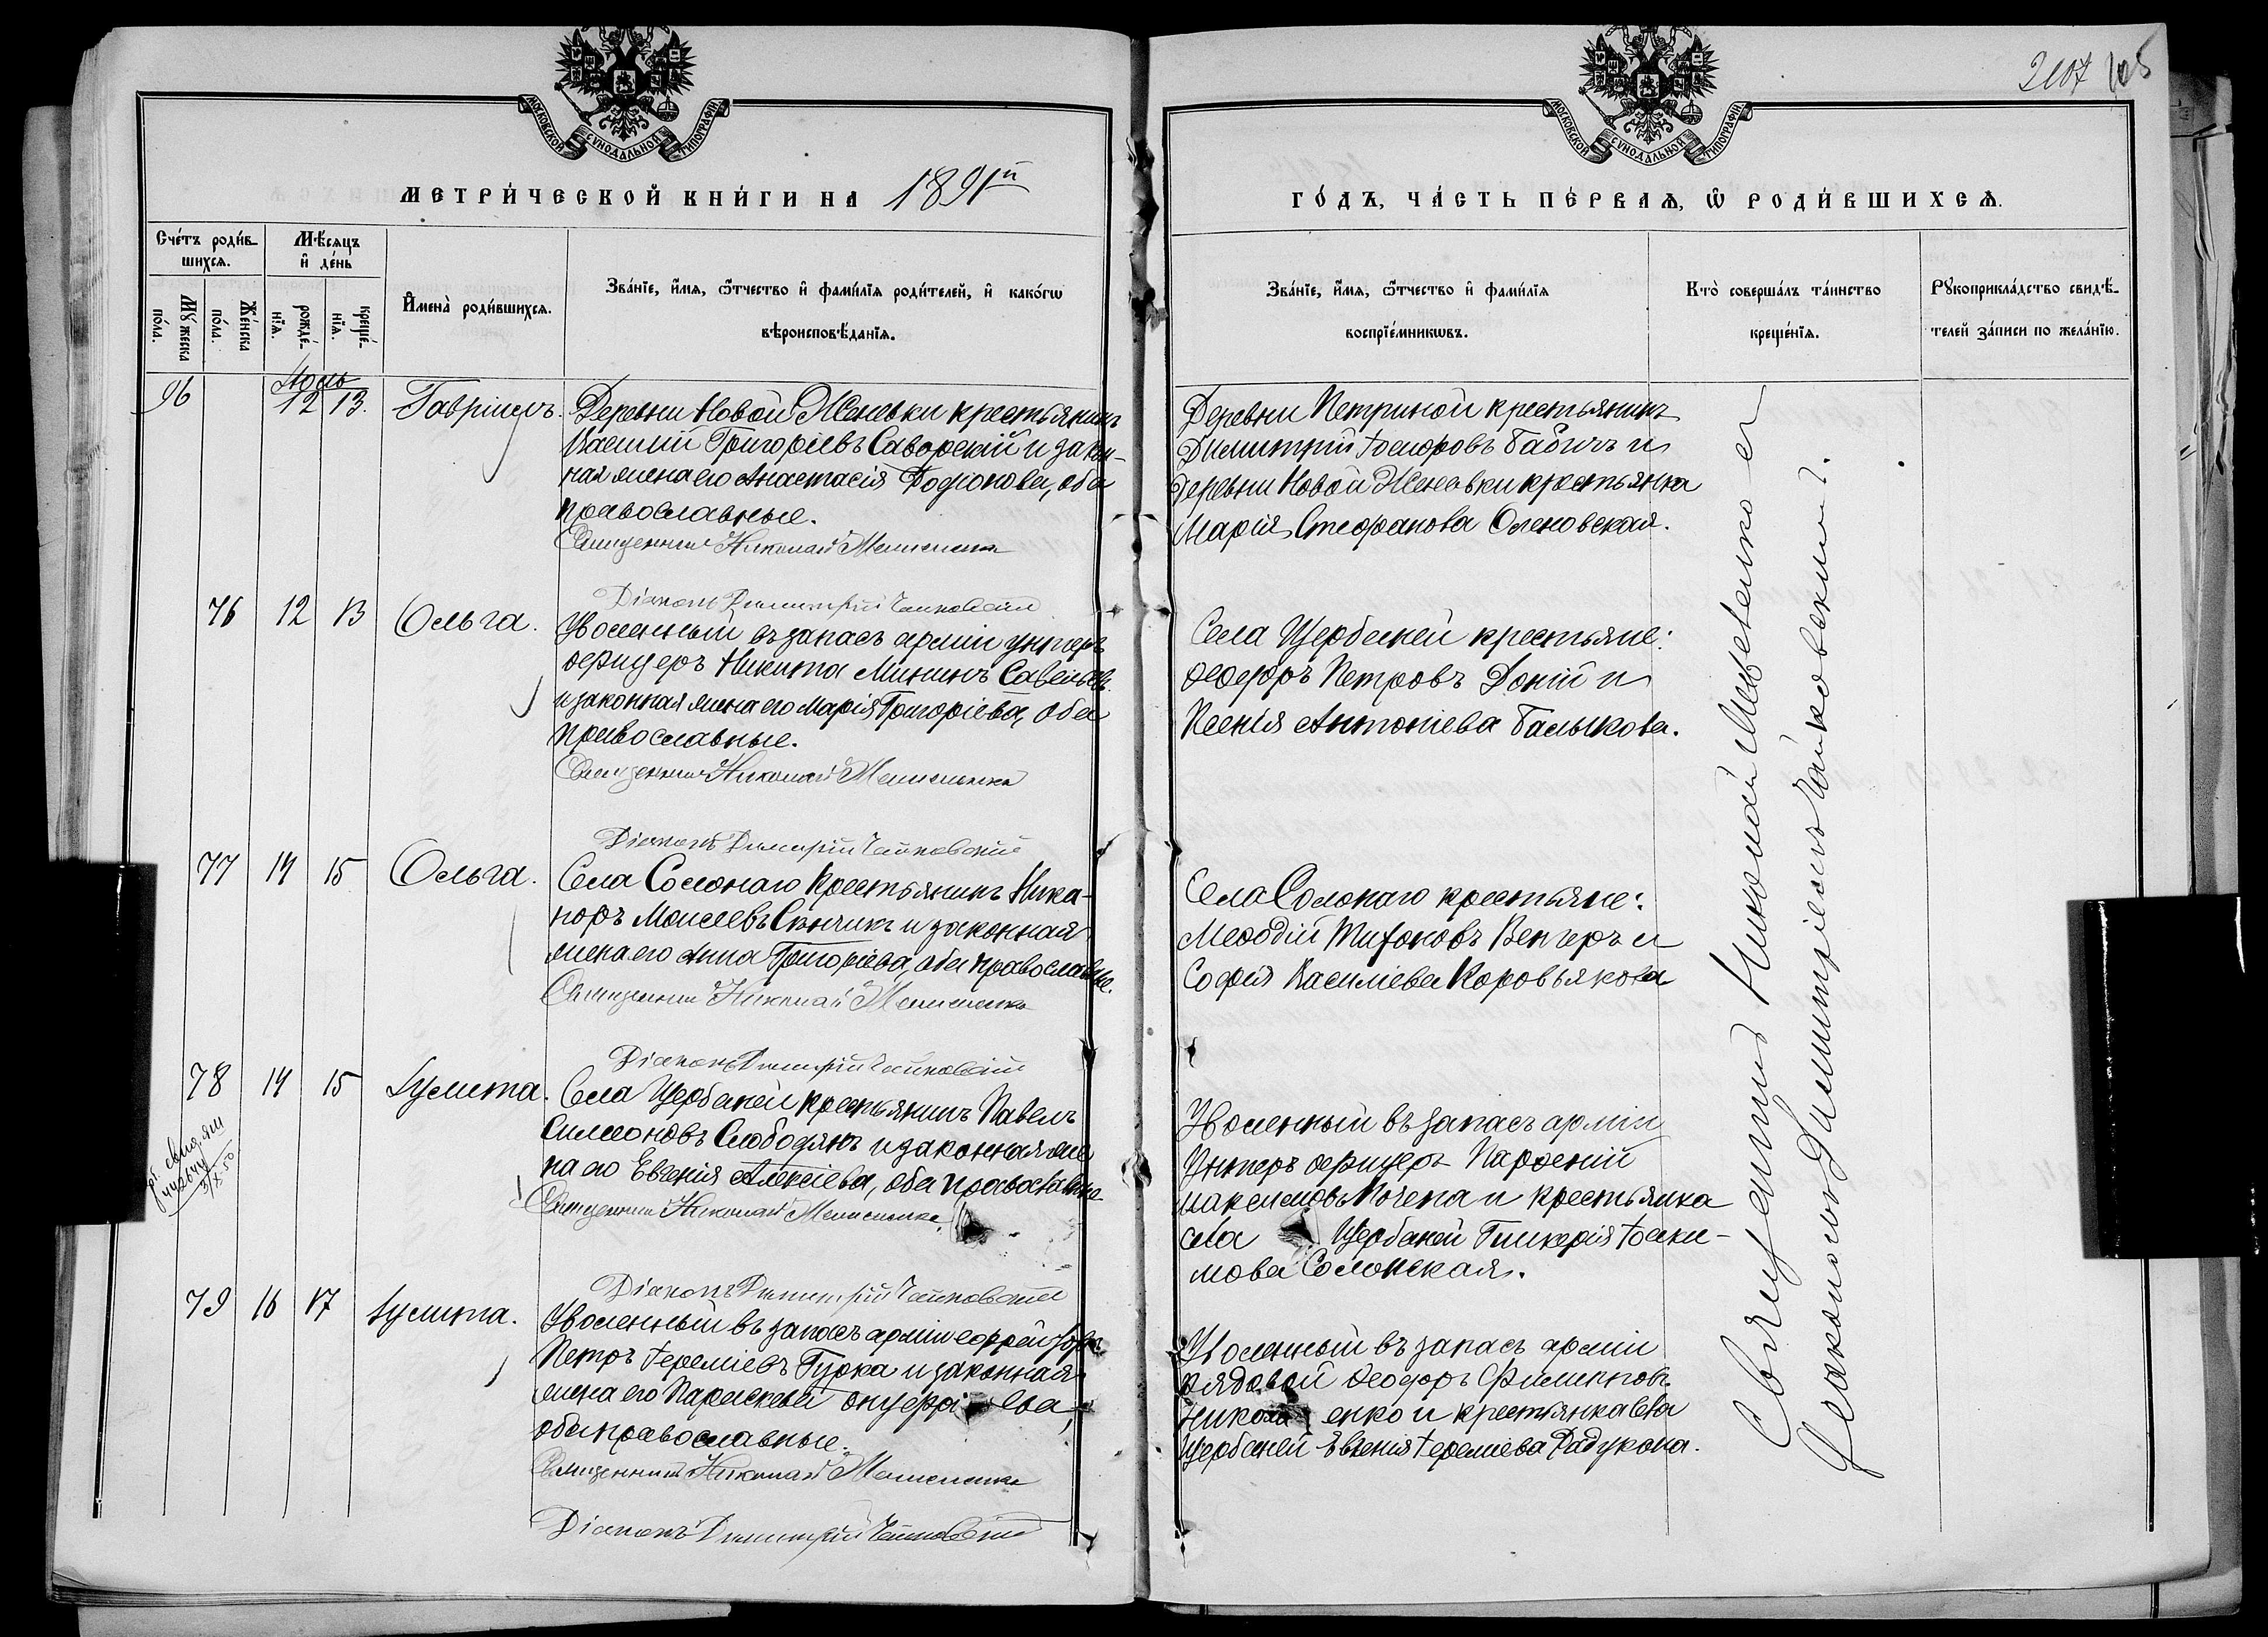 МОСКОВСКОЙ СѴНОДАЛЬНОЙ ТИПОГРАФІИ
МЕТРИ́ЧЕСКОЙ КНИ́ГИ НА 1891й
Сче́тъ роди́в-
шихся.
Мѣ́сяцъ
и҆ де́нь
Мꙋ́жеска
по́ла.
Же́нска
по́ла.
рожде́-
нїѧ.
креще́-
нїѧ.
И҆мена̀ роди́вшихся.
Зва́нїе, и҆́мѧ, ѻ҆́тчество и҆ фами́лїѧ роди́телей, и҆ како́гѡ
вѣроисповѣ́данїѧ.
Іюль
96 12 13. Гавріилъ. Деревни Новой Женевки крестьянинъ
Василій Григоріевъ Саворскій и закон-
ная жена его Анастасія, оба
православные.
Священникъ Николай
Діаконъ Димитрій Чайковскій
76 12 13 Ольга. Уволенный въ запасъ арміи унтеръ
офицеръ Никита Мининъ Савельевъ
и законная жена его Марія Григоріева, оба
православные.
Священникъ Николай
Діаконъ Димитрій Чайковскій
77 14 15 Ольга. Села Солонаго крестьянинъ Ника-
норъ Моисеевъ и законная
жена его Анна Григоріева, оба православные.
Священникъ Николай
Діаконъ Димитрій Чайковскій
78 14 15 Іулитта. Села Щербаней крестьянинъ Павелъ
Симеоновъ Слободянъ и законная же
на его Евгенія Алексіева, оба православные
Священникъ Николай
Діаконъ Димитрій Чайковскій
79 16 17 Іулитта. Уволенный въ запасъ арміи ефрейторъ
Петръ Іереміевъ Гурка и законная
жена его Параскева Онуфріева,
оба православные.
Священникъ Николай
Діаконъ Димитрій Чайковскій
МОСКОВСКОЙ СѴНОДАЛЬНОЙ ТИПОГРАФІИ
ГО́ДЪ, ЧА́СТЬ ПЕ́РВАѦ, Ѡ҆ РОДИ́ВШИХСѦ.
Зва́нїе, и҆́мѧ, ѻ҆́тчество и҆ фами́лїѧ
воспрїе́мникѡвъ.
Кто̀ соверша́лъ та́инство
креще́нїѧ.
Рꙋкоприкла́дство свидѣ́-
телей за́писи по жела́нїю.
Деревни Петриной крестьянинъ
Димитрій Іосифовъ Бабичъ и
деревни Новой Женевки крестьянка
Марія Стефанова Оленовская.
Села Щербаней крестьяне:
Ѳеодоръ Петровъ Доній и
Ксенія Антоніева Балыкова.
Села Солонаго крестьяне:
Меѳодій Тихоновъ Венгеръ и
Софія Василіева Коровьякова
Уволенный въ запасъ арміи
Унтеръ офицеръ Парѳеній
Максимовъ и крестьянка
села Щербаней Гликерія Іоаки-
мова Солонская.
Уволенный въ запасъ арміи
рядовой Ѳеодоръ Филипповъ
Николаенко и крестьянка села
Щербаней Евгенія Іереміева Радукова.
Священникъ Николай
Діакономъ Димитріемъ Чайковскимъ.